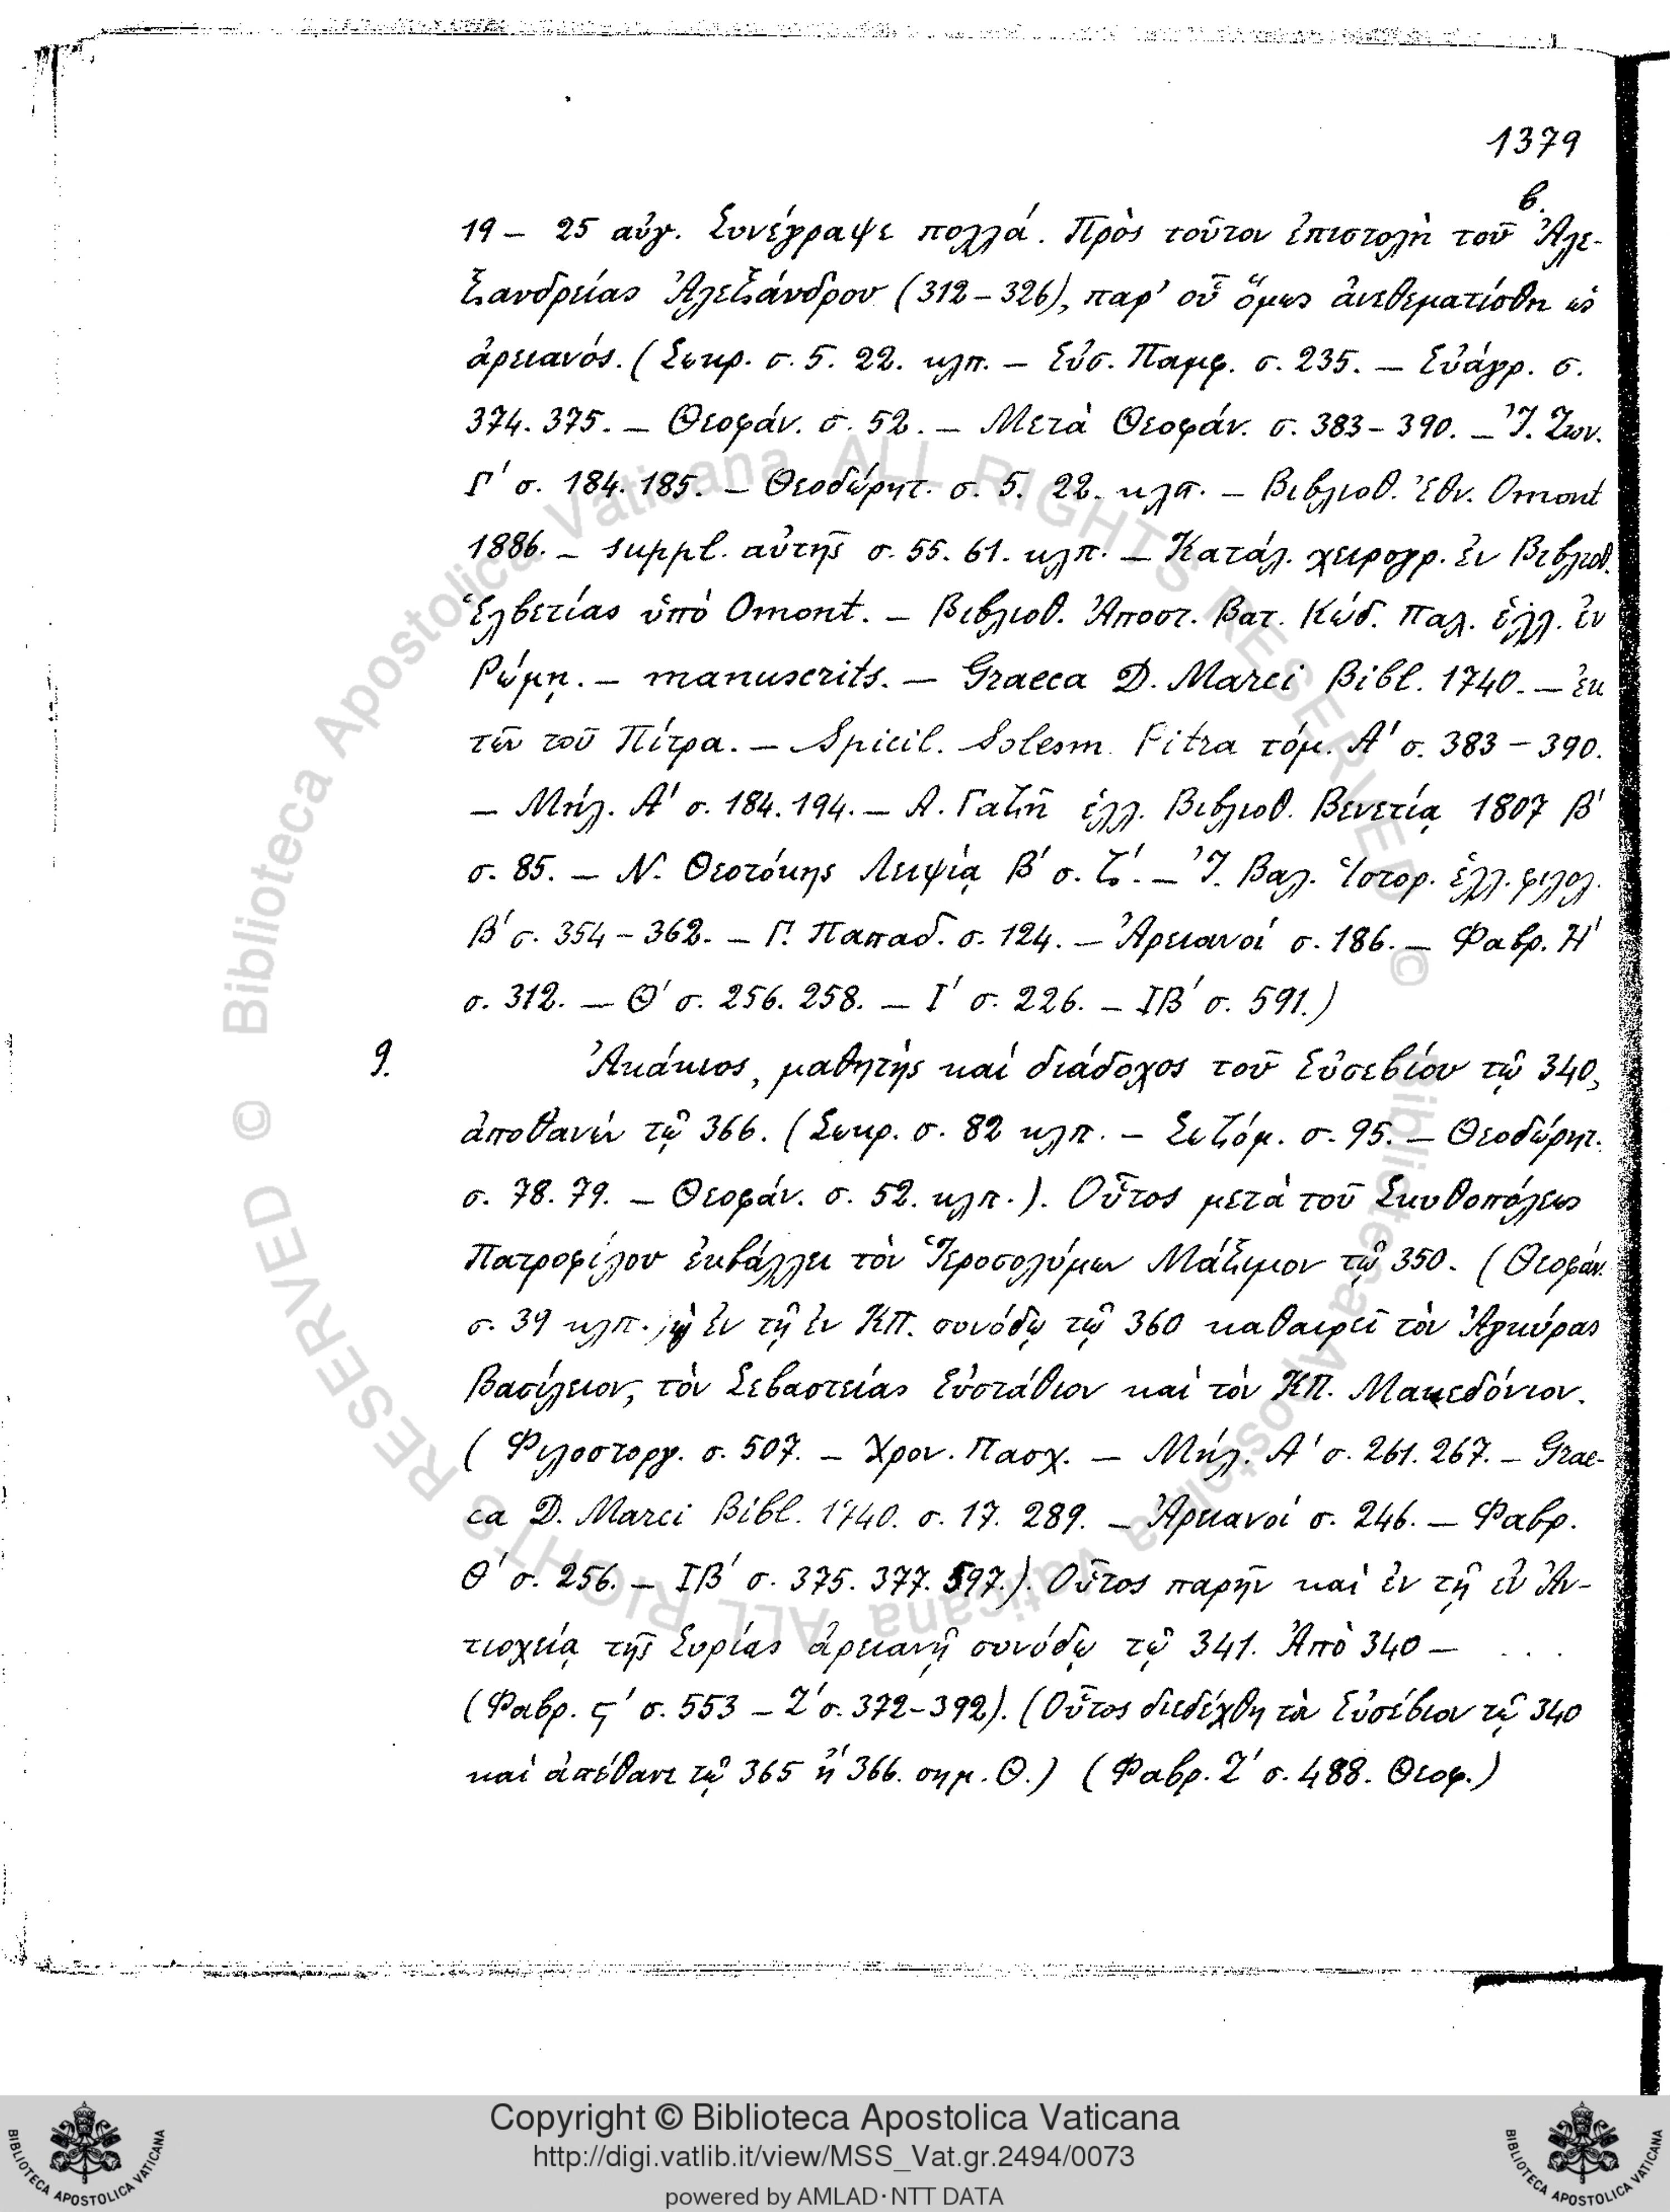 1379
β.
19 – 25 αὐγ. Συνέγραψε πολλά. Πρὸς τοῦτον ἐπιστολὴ τοῦ Ἀλε-
ξανδρείας Ἀλεξάνδρου (312 – 326), παρ' οὗ ὅμως ἀνεθεματίσθη ὡς
ἀρειανός. (Σωκρ. σ. 5. 22. κλπ. – Εὐσ. Παμφ. σ. 235. – Εὐάγρ. σ.
374. 375. – Θεοφάν. σ. 52. – Μετὰ Θεοφάν. σ. 383 – 390. – Ἰ. Ζων.
Γ' σ. 184. 185. – Θεοδώρητ. σ. 5. 22. κλπ. – Βιβλιοθ. Ἐθν. Omont
1886. – suppl. αὐτῆς σ. 55. 61. κλπ. – Κατάλ. χειρογρ. ἐν Βιβλιοθ.
Ἑλβετίας ὑπὸ Omont. – Βιβλιοθ. Ἀποστ. Βατ. Κώδ. Παλ. ἑλλ. ἐν
Ρώμῃ. – manuscrits. – Graeca D. Marci Bibl. 1740. – ἐκ
τῶν τοῦ Πίτρα. – Spicil. Solesm. Pitra τόμ. Α' σ. 383 – 390.
– Μήλ. Α' σ. 184. 194. – Α. Γαζῆ ἑλλ. Βιβλιοθ. Βενετίᾳ 1807 Β'
σ. 85. – Ν. Θεοτόκης Λειψίᾳ Β' σ. ζ'. – Ἰ. Βαλ. Ἱστορ. ἑλλ. φιλολ.
Β' σ. 354 – 362. – Γ. Παπαδ. σ. 124. – Ἀρειανοί σ. 186. – Φαβρ. Η'
σ. 312. – Θ' σ. 256. 258. – Ι' σ. 226. – ΙΒ' σ. 591.)
9. Ἀκάκιος, μαθητὴς καὶ διάδοχος τοῦ Εὐσεβίου τῷ 340,
ἀποθανών τῷ 366. (Σωκρ. σ. 82 κλπ. – Σωζόμ. σ. 95. – Θεοδώρητ.
σ. 78. 79. – Θεοφάν. σ. 52. κλπ.). Οὗτος μετὰ τοῦ Σκυθοπόλεως
Πατροφίλου ἐκβάλλει τὸν Ἱεροσολύμων Μάξιμον τῷ 350. (Θεοφάν.
σ. 39 κλπ. ἐν τῇ ἐν ΚΠ. συνόδῳ τῷ 360 καθαιρεῖ τὸν Ἀγκύρας
Βασίλειον, τὸν Σεβαστείας Εὐστάθιον καὶ τὸν ΚΠ. Μακεδόνιον.
(Φιλοστοργ. σ. 507. – Χρον. Πασχ. – Μήλ. Α' σ. 261. 267. – Grae-
ca D. Marci Bibl. 1740. σ. 17. 289. – Ἀρειανοί σ. 246. – Φαβρ.
Θ' σ. 256. – ΙΒ' σ. 375. 377. 597.). Οὗτος παρῆν καὶ ἐν τῇ ἐν Ἀν-
τιοχείᾳ τῆς Συρίας ἀρειανῇ συνόδῳ τῷ 341. Ἀπὸ 340 – . . .
(Φαβρ. ς' σ. 553 – Ζ' σ. 372 – 392). (Οὗτος διεδέχθη τὸν Εὐσέβιον τῷ 340
καὶ ἀπέθανε τῷ 365 ἢ 366. σημ. Θ.) (Φαβρ. Ζ' σ. 488. Θεοφ.)
© Biblioteca Apostolica Vaticana ALL RIGHTS RESERVED
© Biblioteca Apostolica Vaticana ALL RIGHTS RESERVED
Copyright © Biblioteca Apostolica Vaticana
http://digi.vatlib.it/view/MSS_Vat.gr.2494/0073
powered by AMLAD·NTT DATA
BIBLIOTECA APOSTOLICA VATICANA
BIBLIOTECA APOSTOLICA VATICANA